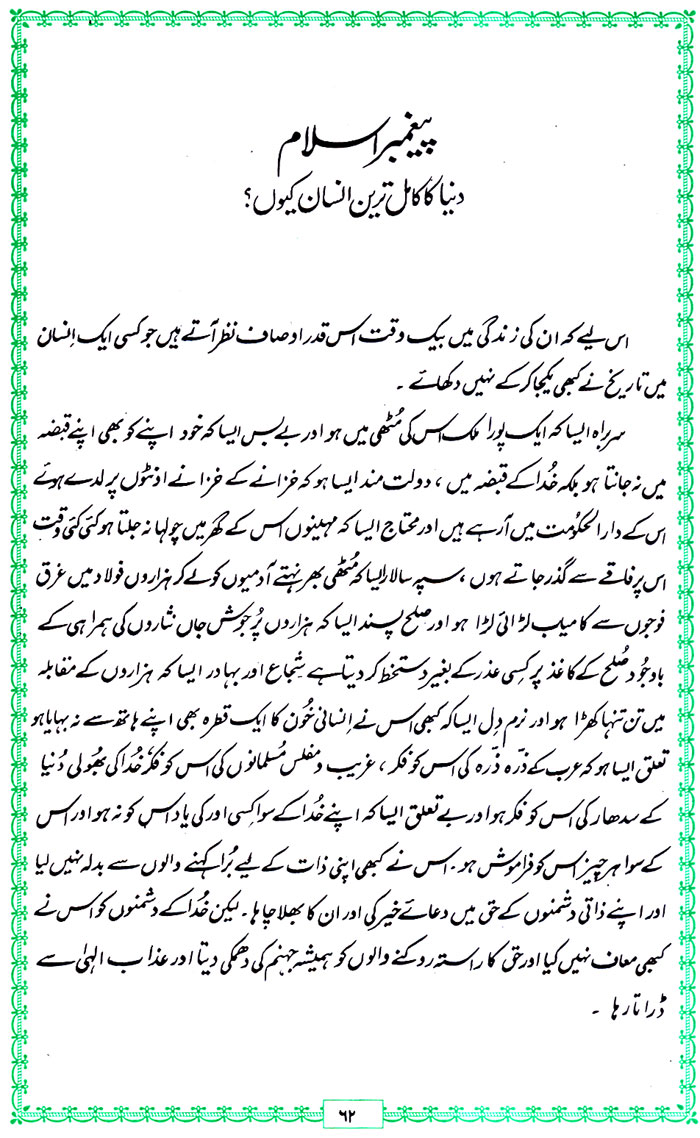 پیغمبر اسلام
دنیا کا کامل ترین انسان کیوں؟
اس لیے کہ ان کی زندگی میں بیک وقت اس قدر اوصاف نظر آتے ہیں جو کسی ایک اِنسان
میں تاریخ نے کبھی یکجا کر کے نہیں دکھائے ۔
سربراہ ایسا کہ ایک پورا ملک اس کی مُٹھی میں ہو اور بے بس ایسا کہ خود اپنے کو بھی اپنے قبضہ
میں نہ جانتا ہو بلکہ خُدا کے قبضہ میں ، دولت مند ایسا ہو کہ خزانے کے خزانے اونٹوں پر لدے ہوئے
اس کے دارالحکُومت میں آرہے ہیں اور محتاج ایسا کہ مہینوں اس کے گھر میں چولہا نہ جلتا ہو کئی کئی وقت
اس پر فاقے سے گذر جاتے ہوں ، سپہ سالار ایسا کہ مُٹھی بھر نہتے آدمیوں کو لے کر ہزاروں فولاد میں غرق
فوجوں سے کامیاب لڑائی لڑا ہو اور صلح پسند ایسا کہ ہزاروں پُرجوش جاں نثاروں کی ہمراہی کے
باوجُود صُلح کے کاغذ پر کِسی عذر کے بغیر دستخط کر دیتا ہے شجاع اور بہادر ایسا کہ ہزاروں کے مقابلہ
میں تن تنہا کھڑا ہو اور نرم دِل ایسا کہ کبھی اس نے اِنسانی خُون کا ایک قطرہ بھی اپنے ہاتھ سے نہ بہایا ہو
تعلق ایسا ہو کہ عرب کے ذرّہ ذرّہ کی اس کو فکر ، غریب و مفلس مُسلمانوں کی اس کو فکر خُدا کی بھُولی دُنیا
کے سدھار کی اس کو فکر ہو اور بے تعلق ایسا کہ اپنے خُدا کے سوا کسی اور کی یاد اس کو نہ ہو اور اس
کے سوا ہر چیز اس کو فراموش ہو۔ اس نے کبھی اپنی ذات کے لیے بُرا کہنے والوں سے بدلہ نہیں لیا
اور اپنے ذاتی دشمنوں کے حق میں دعائے خیر کی اور ان کا بھلا چاہا۔ لیکن خُدا کے دشمنوں کو اس نے
کبھی معاف نہیں کیا اور حق کا راستہ روکنے والوں کو ہمیشہ جہنم کی دھمکی دیتا اور عذاب الہیٰ سے
ڈراتا رہا ۔
۶۲